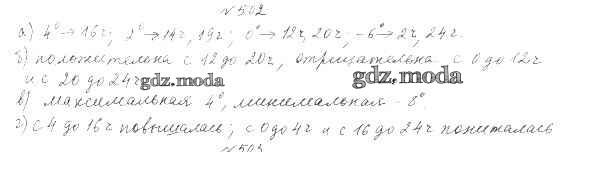 № 502
а) 4° → 16ч; 2° → 14ч, 19ч; 0° → 12ч, 20ч; -6° → 2ч, 24ч.
б) положительна с 12 до 20ч, отрицательна с 0 до 12ч
и с 20 до 24ч gdz.moda gdz.moda
в) максимальная 4°, минимальная -8°.
г) с 4 до 16ч повышалась; с 0 до 4ч и с 16 до 24ч понижалась
№ 503